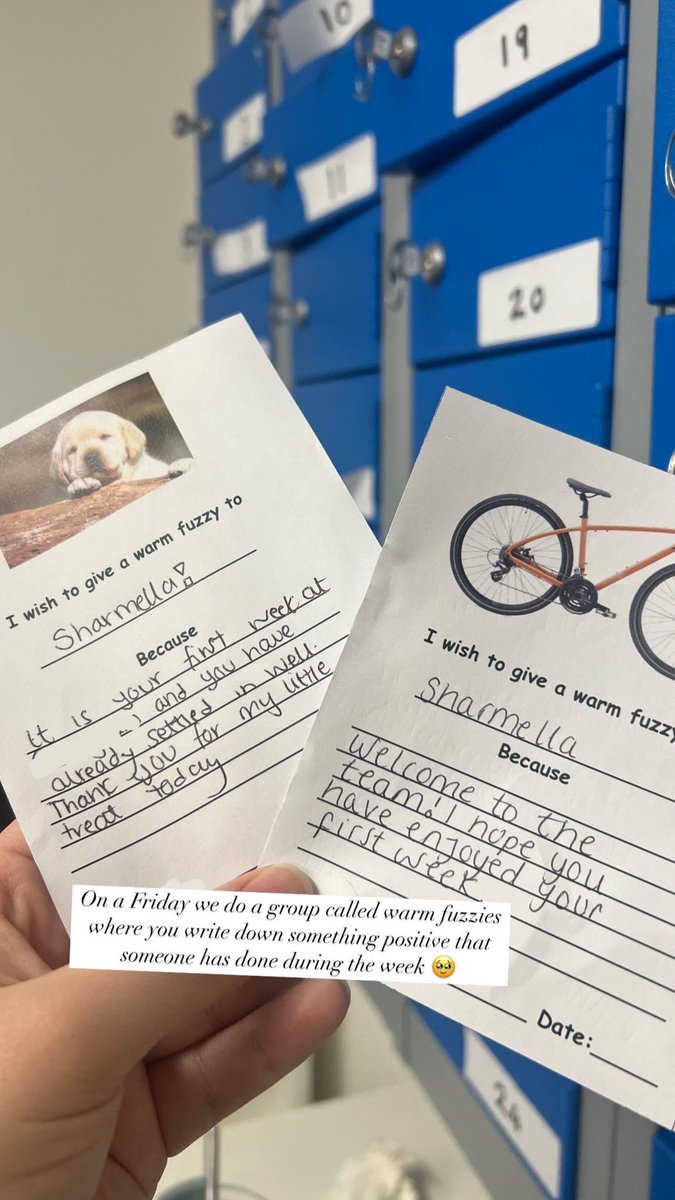 10
19
11
20
I wish to give a warm fuzzy to
Sharmella!
Because
It is your first week at
! and you have
already settled in well.
Thank you for my little
treat today
I wish to give a warm fuzzy
Sharmella
Because
Welcome to the
team! I hope you
have enjoyed your
first week
Date:
On a Friday we do a group called warm fuzzies
where you write down something positive that
someone has done during the week 🥹
24